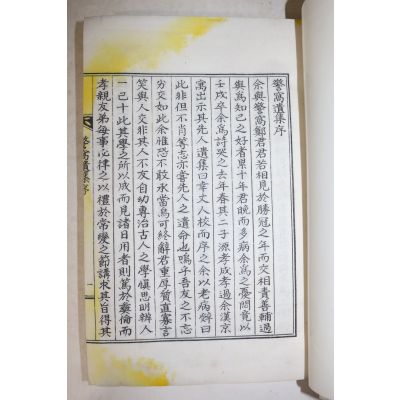 警窩遺集序
余與警窩鄭君君若相見於勝冠之年而交相責善輔過
與爲知己之好者累十年君晩而多病余爲之憂悶竟以
壬戌卒余爲詩哭之去年春其二子源孝成孝過余漢京
寓出示其先人遺集曰幸文人校而序之余以老病辭曰
此非但不肖等志亦嘗先人之遺命也嗚乎吾友之不忘
劣交如此余雖恐不敢承當烏可終辭君重厚質直寡言
笑與人交非其人不友自幼專治古人之學愼思明辨人
一己十此其學之所以成而見諸日用者則篤於彛倫而
孝親友弟每事必律之以禮於常變之節講求其旨得其
警窩遺集序
一